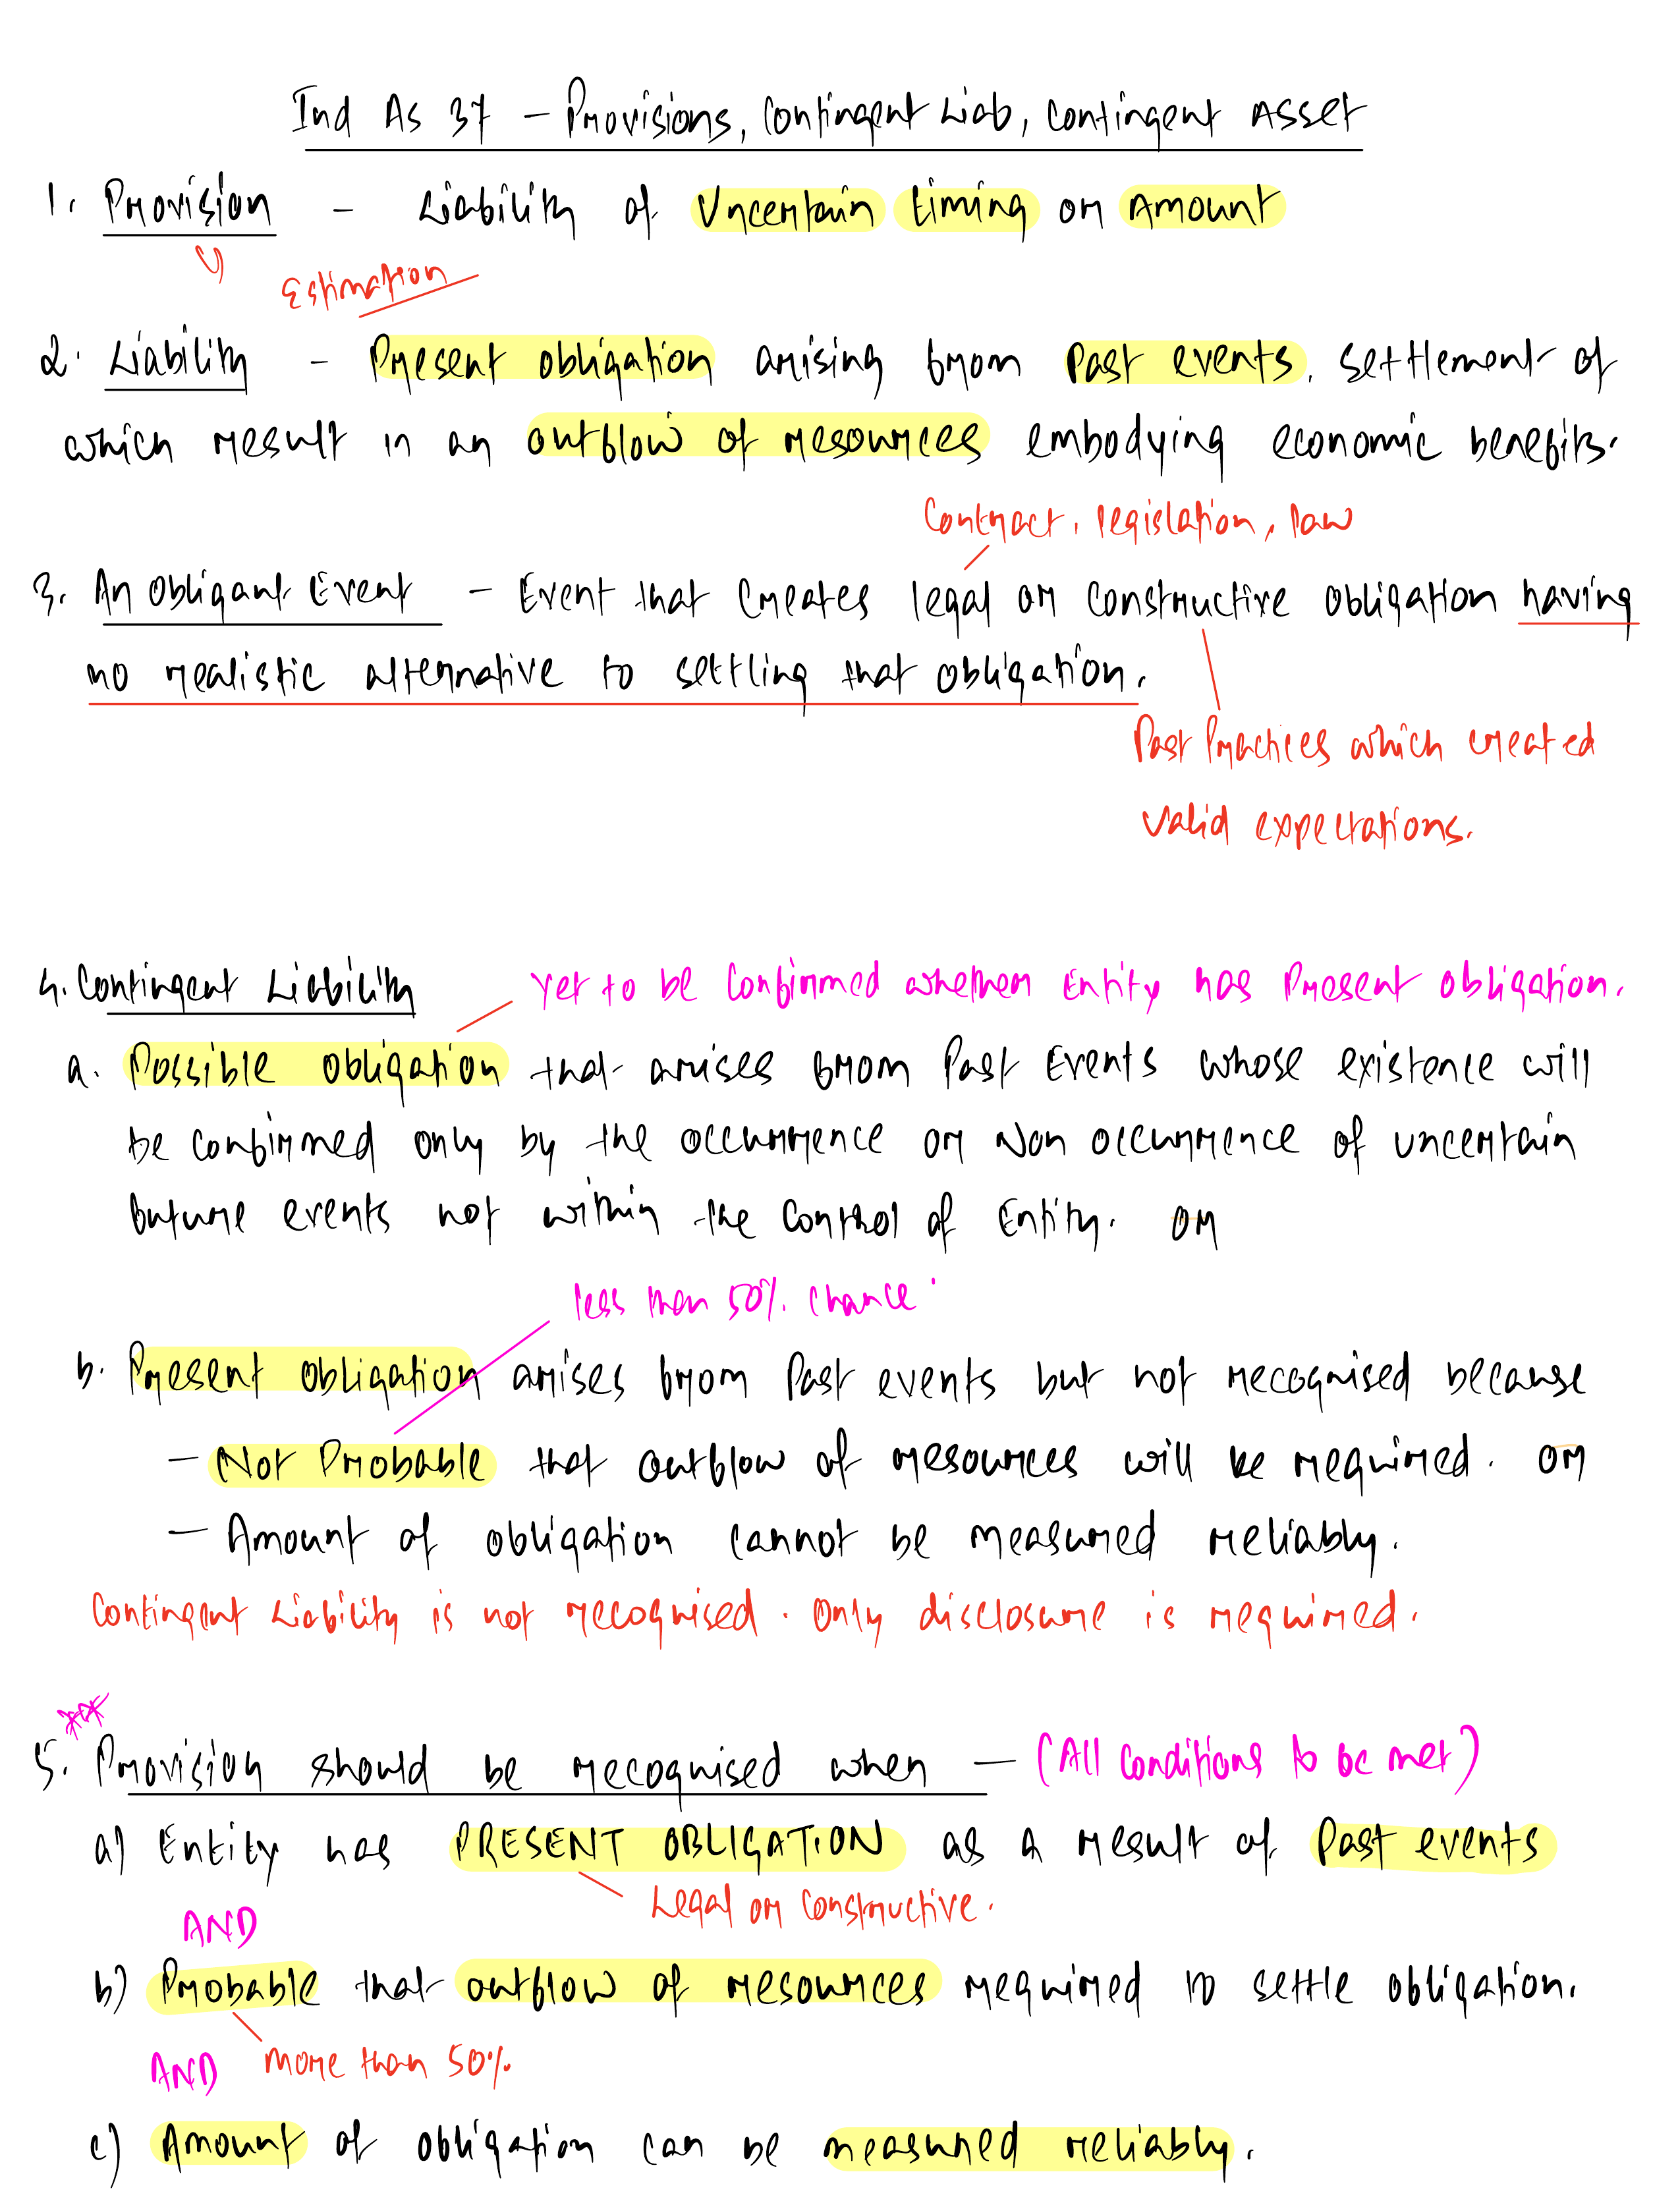 Ind As 37 - Provisions, Contingent Liab, Contingent Asset
1. Provision - Liability of Uncertain timing or Amount
Estimation
2. Liability - Present obligation arising from Past events. Settlement of
which result in an outflow of resources embodying economic benefits.
Contract, legislation, law
3. An Obligant Event - Event that Creates legal or Constructive obligation having
no realistic alternative to settling that obligation.
Past Practices which created
valid expectations.
4. Contingent Liability
Yet to be Confirmed whether Entity has Present obligation.
a. Possible obligation that arises from Past Events whose existence will
be confirmed only by the occurrence or Non occurrence of uncertain
future events not within the control of Entity. or
less then 50% chance.
b. Present obligation arises from Past events but not recognised because
- Not Probable that outflow of resources will be required. or
- Amount of obligation cannot be measured reliably.
Contingent Liability is not recognised. Only disclosure is required.
***
5. Provision should be recognised when - (All conditions to be met)
a) Entity has PRESENT OBLIGATION as a result of Past events
Legal or Constructive.
AND
b) Probable that outflow of resources required to settle obligation.
AND more than 50%
c) Amount of obligation can be measured reliably.